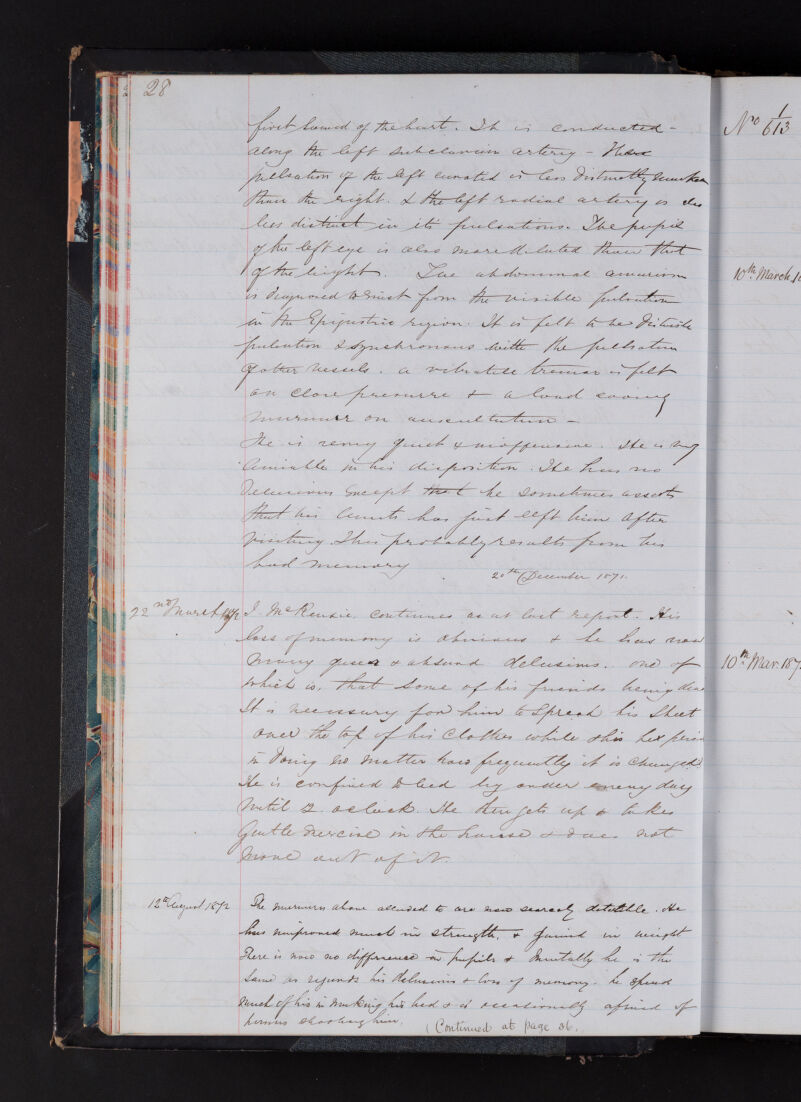 28
first sound of the heart. It is conducted -
along the left subclavian artery - The
pulsation of the left carotid is less distinctly
than the right. & the left radial artery is also
less distinct in its pulsations. The pupil
of the left eye is also more dilated than that
of the right. The abdominal aneurism
is diagnosed to exist from the visible pulsation
in the Epigastric region. It is felt to be distinct
pulsation & synchronous with the pulsation
of other vessels. a vibratile tremor is felt
on close pressure & a loud sawing
murmur on auscultation -
He is very quiet & inoffensive. He is very
amiable in his disposition. He has no
delusions except that he sometimes asserts
that his Aunts has just left him after
visiting. This probably results from his
bad memory
20th December 1871.
22nd March 1872
J. McKensie continues as at last report. His
loss of memory is obvious & he has now
many queer & absurd delusions. one of
which is, that some of his friends being dead
It is necessary for him to spread his sheet
over the top of his clothes while &
in doing so matter how frequently it is changed
He is confined to bed by order every day
until 12 oclock. He then gets up & takes
Gentle exercise in the house & does not
move out of it.
12th August 1872
The murmurs above alluded to are now scarcely detectible. He
has improved much in strength, & gained in weight
There is now no difference in pupils & mentally he is the
same as regards his delusions & loss of memory. he spends
much of his in making his bed & is occasionally afraid of
persons shooting him.
(Continued at page 36.
No 1/613
10th March 18
10th Mar. 187